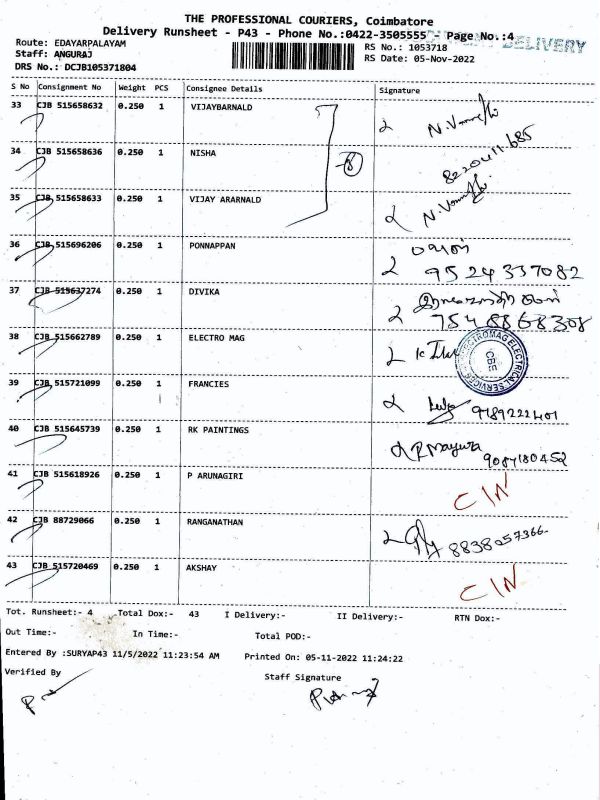 THE PROFESSIONAL COURIERS, Coimbatore
Delivery Runsheet - P43 - Phone No.:0422-3505555 - Page No.:4
DELIVERY
Route: EDAYARPALAYAM
RS No.: 1053718
Staff: ANGURAJ
RS Date: 05-Nov-2022
DRS No.: DCJB105371804
S No Consignment No Weight PCS Consignee Details Signature
33 CJB 515658632 0.250 1 VIJAYBARNALD
34 CJB 515658636 0.250 1 NISHA
35 CJB 515658633 0.250 1 VIJAY ARARNALD
36 CJB 515696206 0.250 1 PONNAPPAN
9524337082
37 CJB 515637274 0.250 1 DIVIKA
7548868308
38 CJB 515662789 0.250 1 ELECTRO MAG
ELECTROMAG ELECTRICAL SERVICES
CBE
39 CJB 515721099 0.250 1 FRANCIES
40 CJB 515645739 0.250 1 RK PAINTINGS
9087180452
41 CJB 515618926 0.250 1 P ARUNAGIRI C/N
42 CJB 88729066 0.250 1 RANGANATHAN
8838057366
43 CJB 515720469 0.250 1 AKSHAY C/N
Tot. Runsheet:- 4 Total Dox:- 43 I Delivery:- II Delivery:- RTN Dox:-
Out Time:- In Time:- Total POD:-
Entered By :SURYAP43 11/5/2022 11:23:54 AM Printed On: 05-11-2022 11:24:22
Verified By Staff Signature